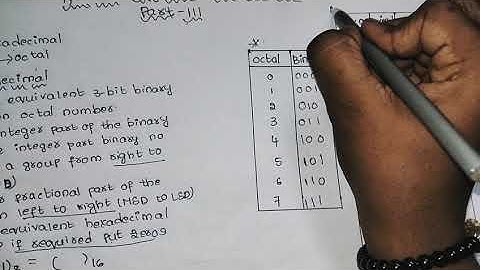 Part-III
adecimal
→octal
ecimal
equivalent 3-bit binary
n octal number
integer part of the binary
e integer part binary no
a group from right to
B)
r fractional part of the
m left to right (MSD to LSD)
equivalent hexadecimal
if required put zeros
)8 = ( )16
octal Bin
0 000
1 001
2 010
3 011
4 100
5 101
6 110
7 111